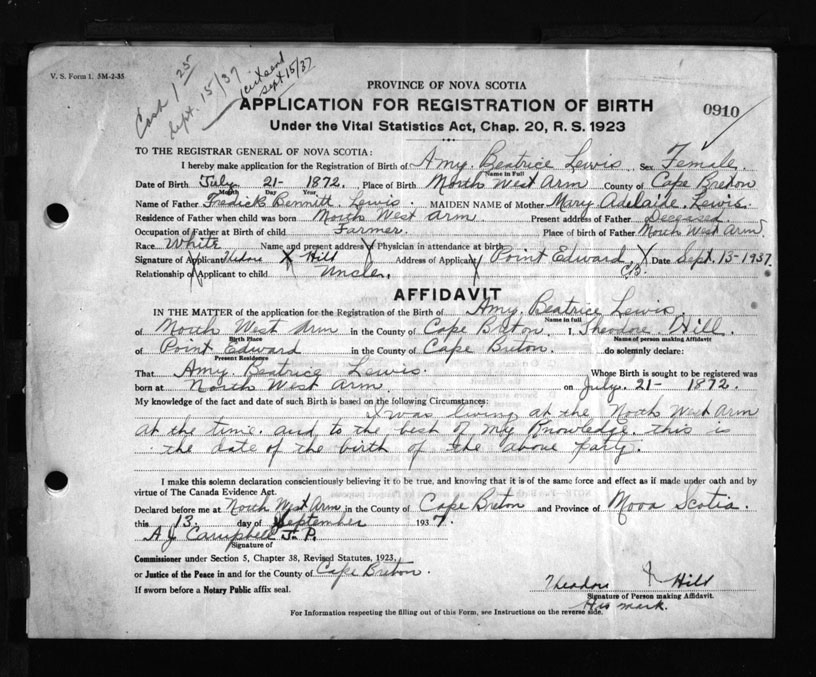 V. S. Form 1. 5M-2-35
Cash 1 25
Sept. 15/37
Sept 15/37
PROVINCE OF NOVA SCOTIA
APPLICATION FOR REGISTRATION OF BIRTH
0910
Under the Vital Statistics Act, Chap. 20, R. S. 1923
TO THE REGISTRAR GENERAL OF NOVA SCOTIA:
I hereby make application for the Registration of Birth of Amy. Beatrice Lewis Sex Female.
Name in Full
Date of Birth July. 21- 1872. Place of Birth North West Arm County of Cape Breton
Month Day Year
Name of Father Fredick Bennitt. Lewis. MAIDEN NAME of Mother Mary Adelaide. Lewis.
Residence of Father when child was born North West Arm. Present address of Father Deceased.
Occupation of Father at Birth of child Farmer. Place of birth of Father North West Arm.
Race White Name and present address of Physician in attendance at birth
Signature of Applicant Theodore X Hill Address of Applicant Point Edward X Date Sept. 13-1937.
C.B.
Relationship of Applicant to child Uncle.
AFFIDAVIT
IN THE MATTER of the application for the Registration of the Birth of Amy. Beatrice Lewis
Name in full
of North West Arm in the County of Cape Breton. I, Theodore Hill.
Birth Place Name of person making Affidavit
of Point Edward in the County of Cape Breton. do solemnly declare:
Present Residence
That Amy. Beatrice Lewis. Whose Birth is sought to be registered was
born at North West Arm. on July. 21- 1872.
My knowledge of the fact and date of such Birth is based on the following Circumstances:
I was living at the North West Arm
at the time. and to the best of my Knowledge. this is
the date of the birth of the above party.
I make this solemn declaration conscientiously believing it to be true, and knowing that it is of the same force and effect as if made under oath and by
virtue of The Canada Evidence Act.
Declared before me at North West Arm in the County of Cape Breton and Province of Nova Scotia.
this 13. day of September 1937.
A J Campbell J. P.
Signature of
Commissioner under Section 5, Chapter 38, Revised Statutes, 1923,
or Justice of the Peace in and for the County of Cape Breton.
If sworn before a Notary Public affix seal.
Theodore X Hill
Signature of Person making Affidavit.
His mark.
For Information respecting the filling out of this Form, see Instructions on the reverse side.